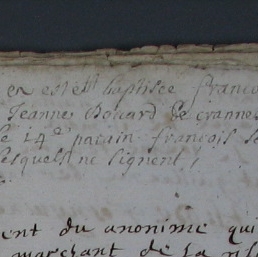 et est été baptisée franco
Jeanne Bouard de crannes
le 14e parain françois
lesquels ne signent
ent du anonime qui
marchant de la